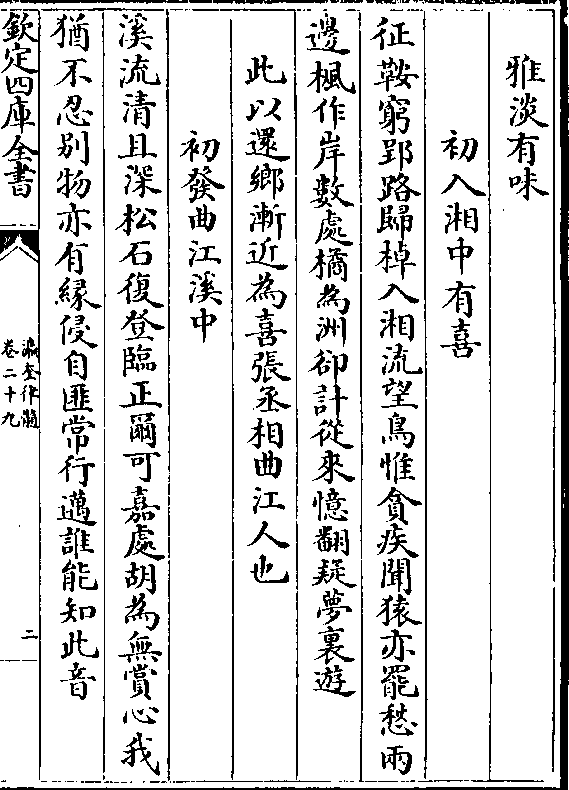 雅淡有味
初入湘中有喜
征鞍窮郢路歸棹入湘流望鳥惟貪疾聞猿亦罷愁兩
邊楓作岸數處橘為洲卻計從來憶翻疑夢裏遊
此以還鄉漸近為喜張丞相曲江人也
初發曲江溪中
溪流清且深松石復登臨正爾可嘉處胡為無賞心我
猶不忍别物亦有緣侵自匪常行邁誰能知此音
欽定四庫全書
瀛奎律髓
卷二十九
二